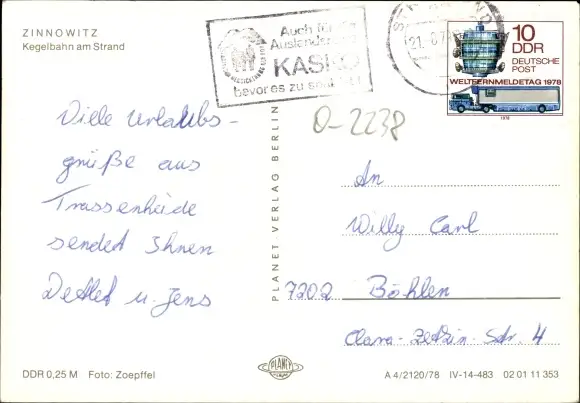 ZINNOWITZ
Kegelbahn am Strand
Auch für
Auslandsreisen
KASKO
bevor es zu spät ist!
21.
10
DDR
DEUTSCHE
POST
WELTFERNMELDETAG 1978
1978
O-2238
Viele Urlaubs-
grüße aus
Trassenheide
sendet Ihnen
Detlef u. Jens
PLANET VERLAG BERLIN
An
Willy Carl
7202 Böhlen
Clara-Zetkin-Str. 4
DDR 0,25 M Foto: Zoepffel
PLANET
A 4/2120/78 IV-14-483 02 01 11 353